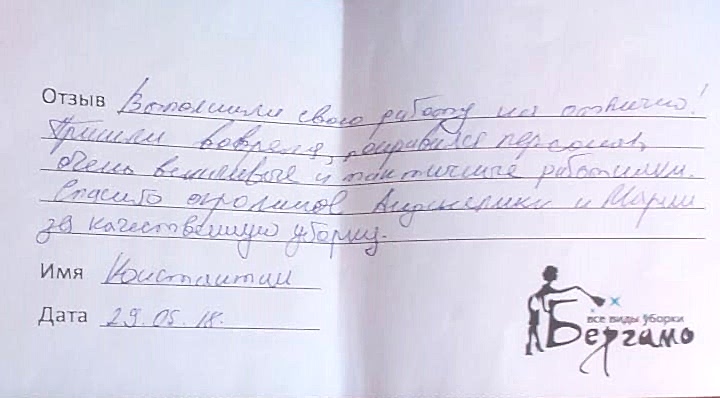 Отзыв Выполнили свою работу на отлично!
Пришли вовремя, понравился персонал,
очень вежливые и тактичные работники.
Спасибо огромное Анджелики и Марии
за качественную уборку.
Имя Константин
Дата 29.05.18.
все виды уборки
Бергамо